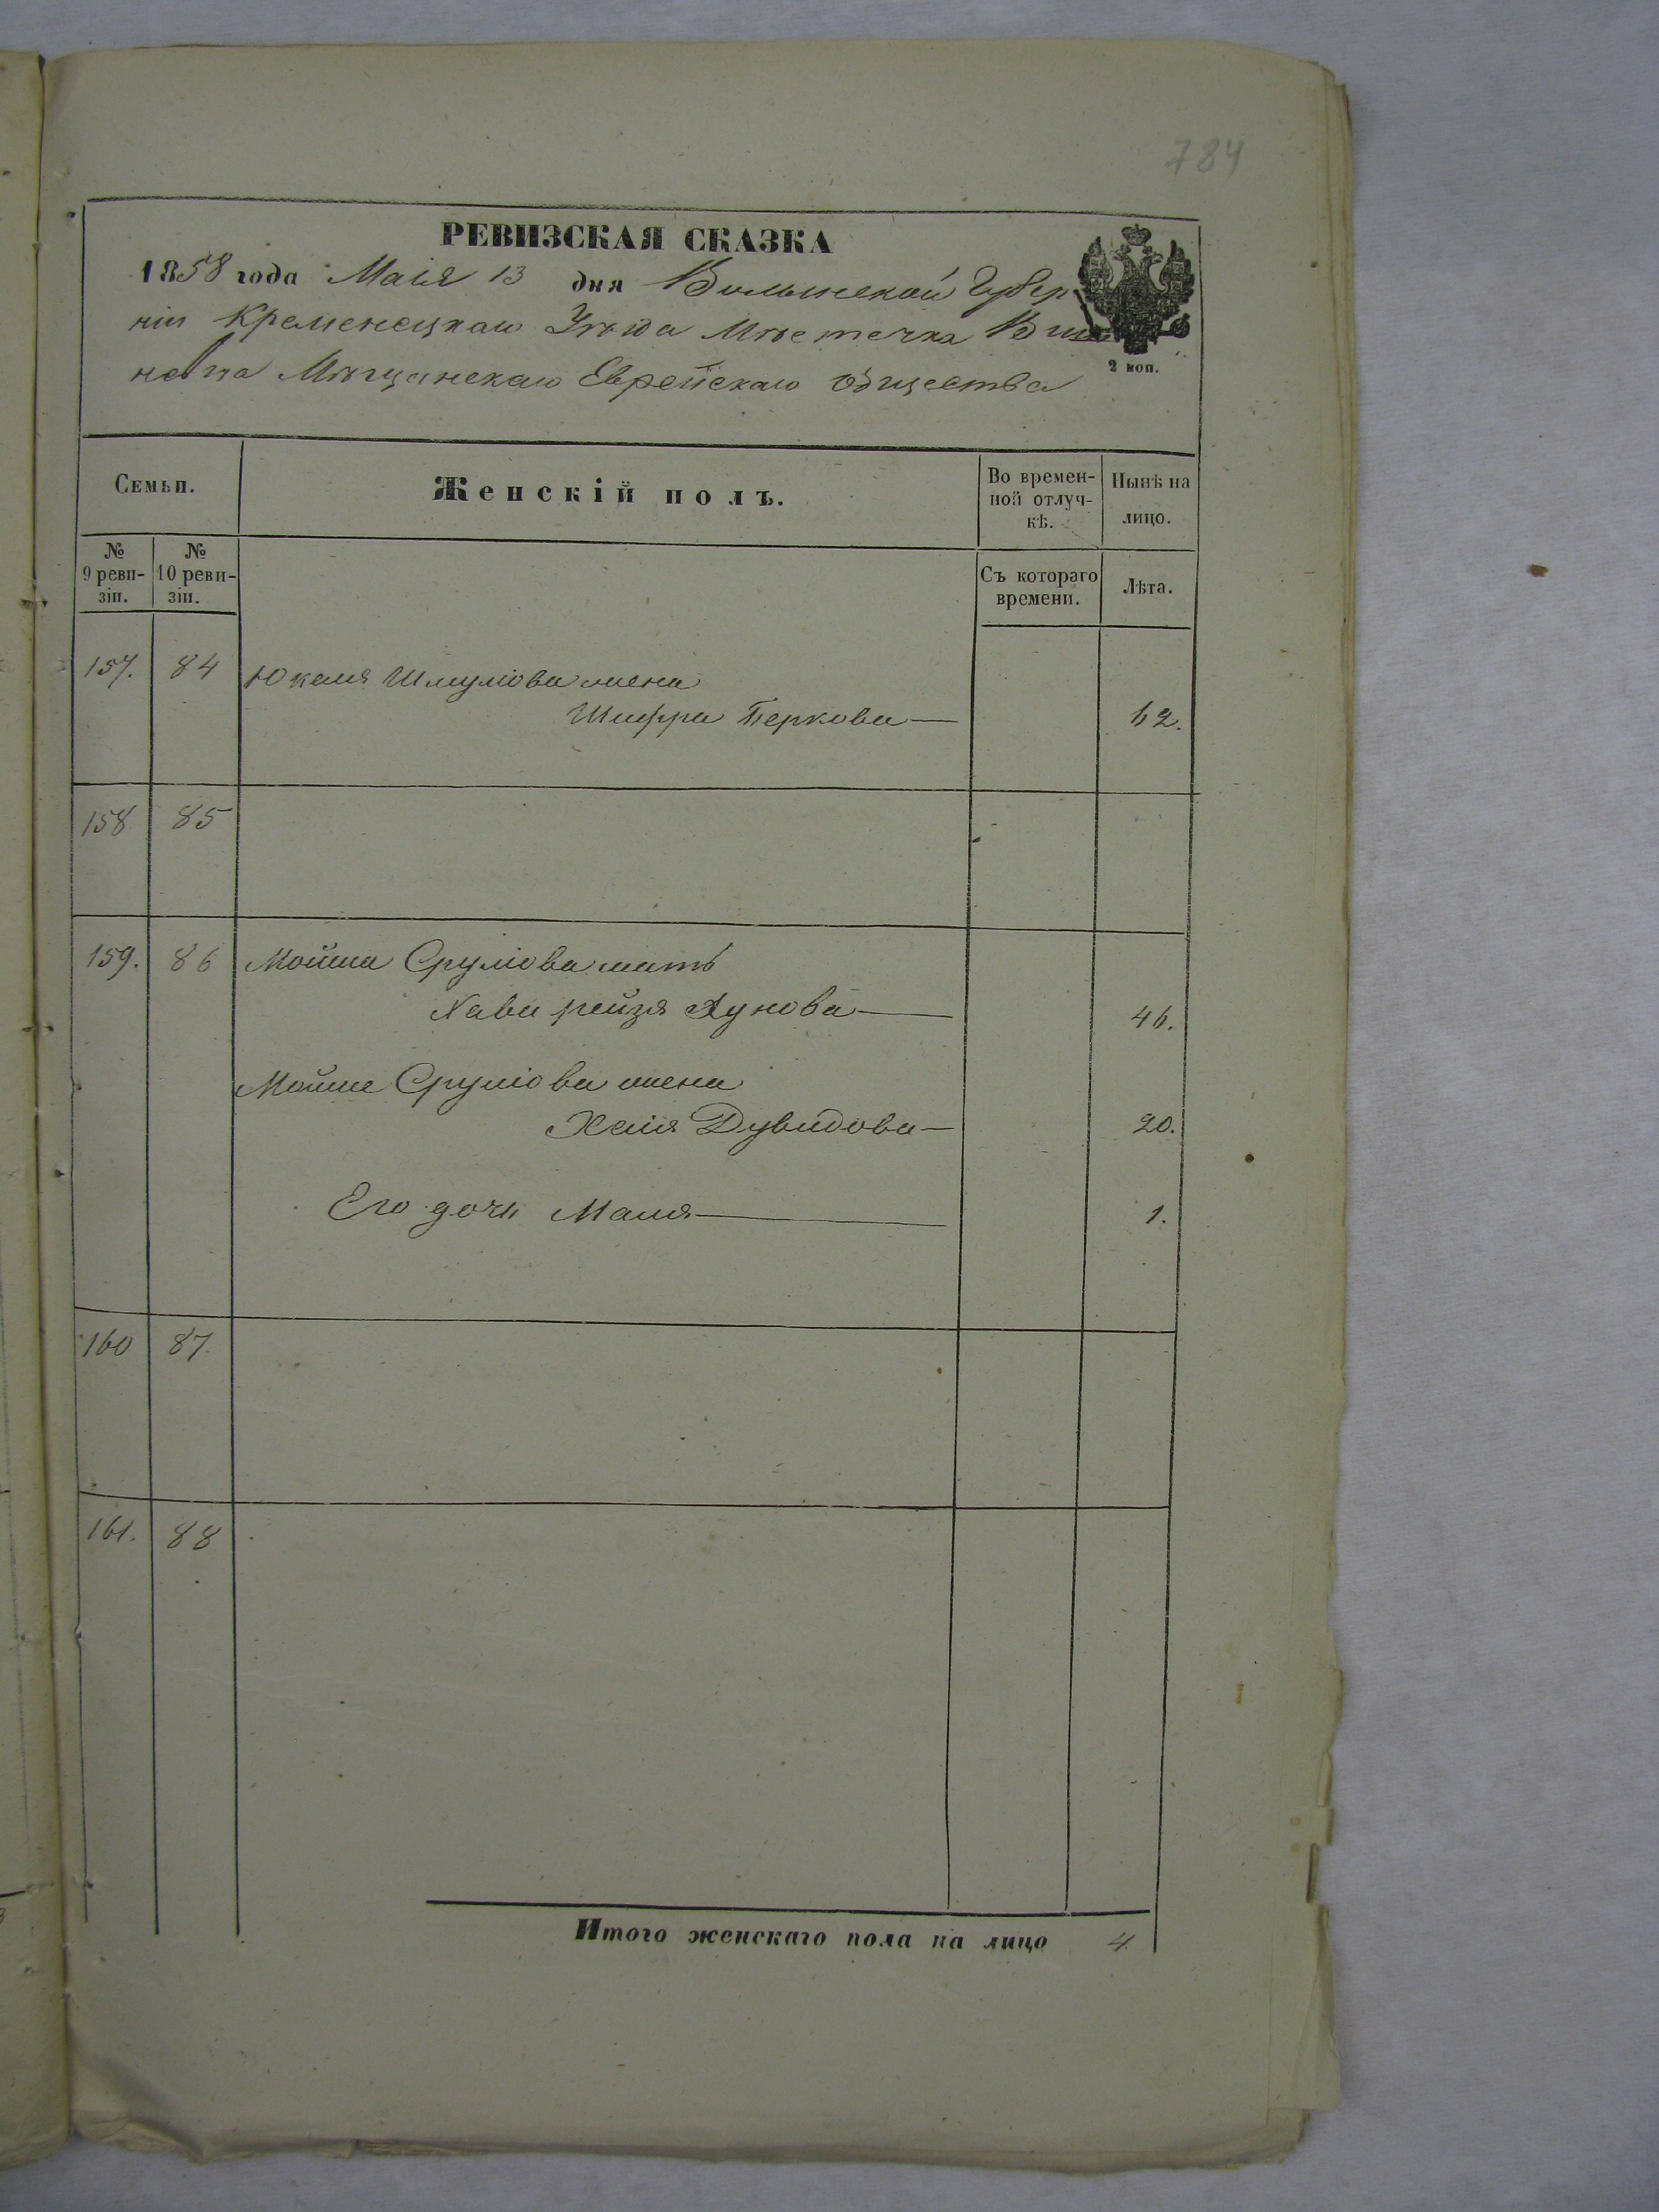 784
РЕВИЗСКАЯ СКАЗКА
1858 года Маія 13 дня Волынской Губер
ніи Кременецкаго Уѣзда Мѣстечка Виш
невца Мѣщанскаго Еврейскаго общества
2 коп.
Семьи. Женскій полъ. Во времен-ной отлуч-кѣ. Нынѣ на лицо.
№ 9 реви-зіи. № 10 реви-зіи. Съ котораго времени. Лѣта.
157. 84 Шмулова жена
Шифра Беркова 62.
158 85
159. 86 Мойша Срулiова мать
рейзя 46.
Мойше Срулiова жена
Хаiя Дувидова 20.
Его дочь Маля 1.
160 87
161. 88
Итого женскаго пола на лицо 4